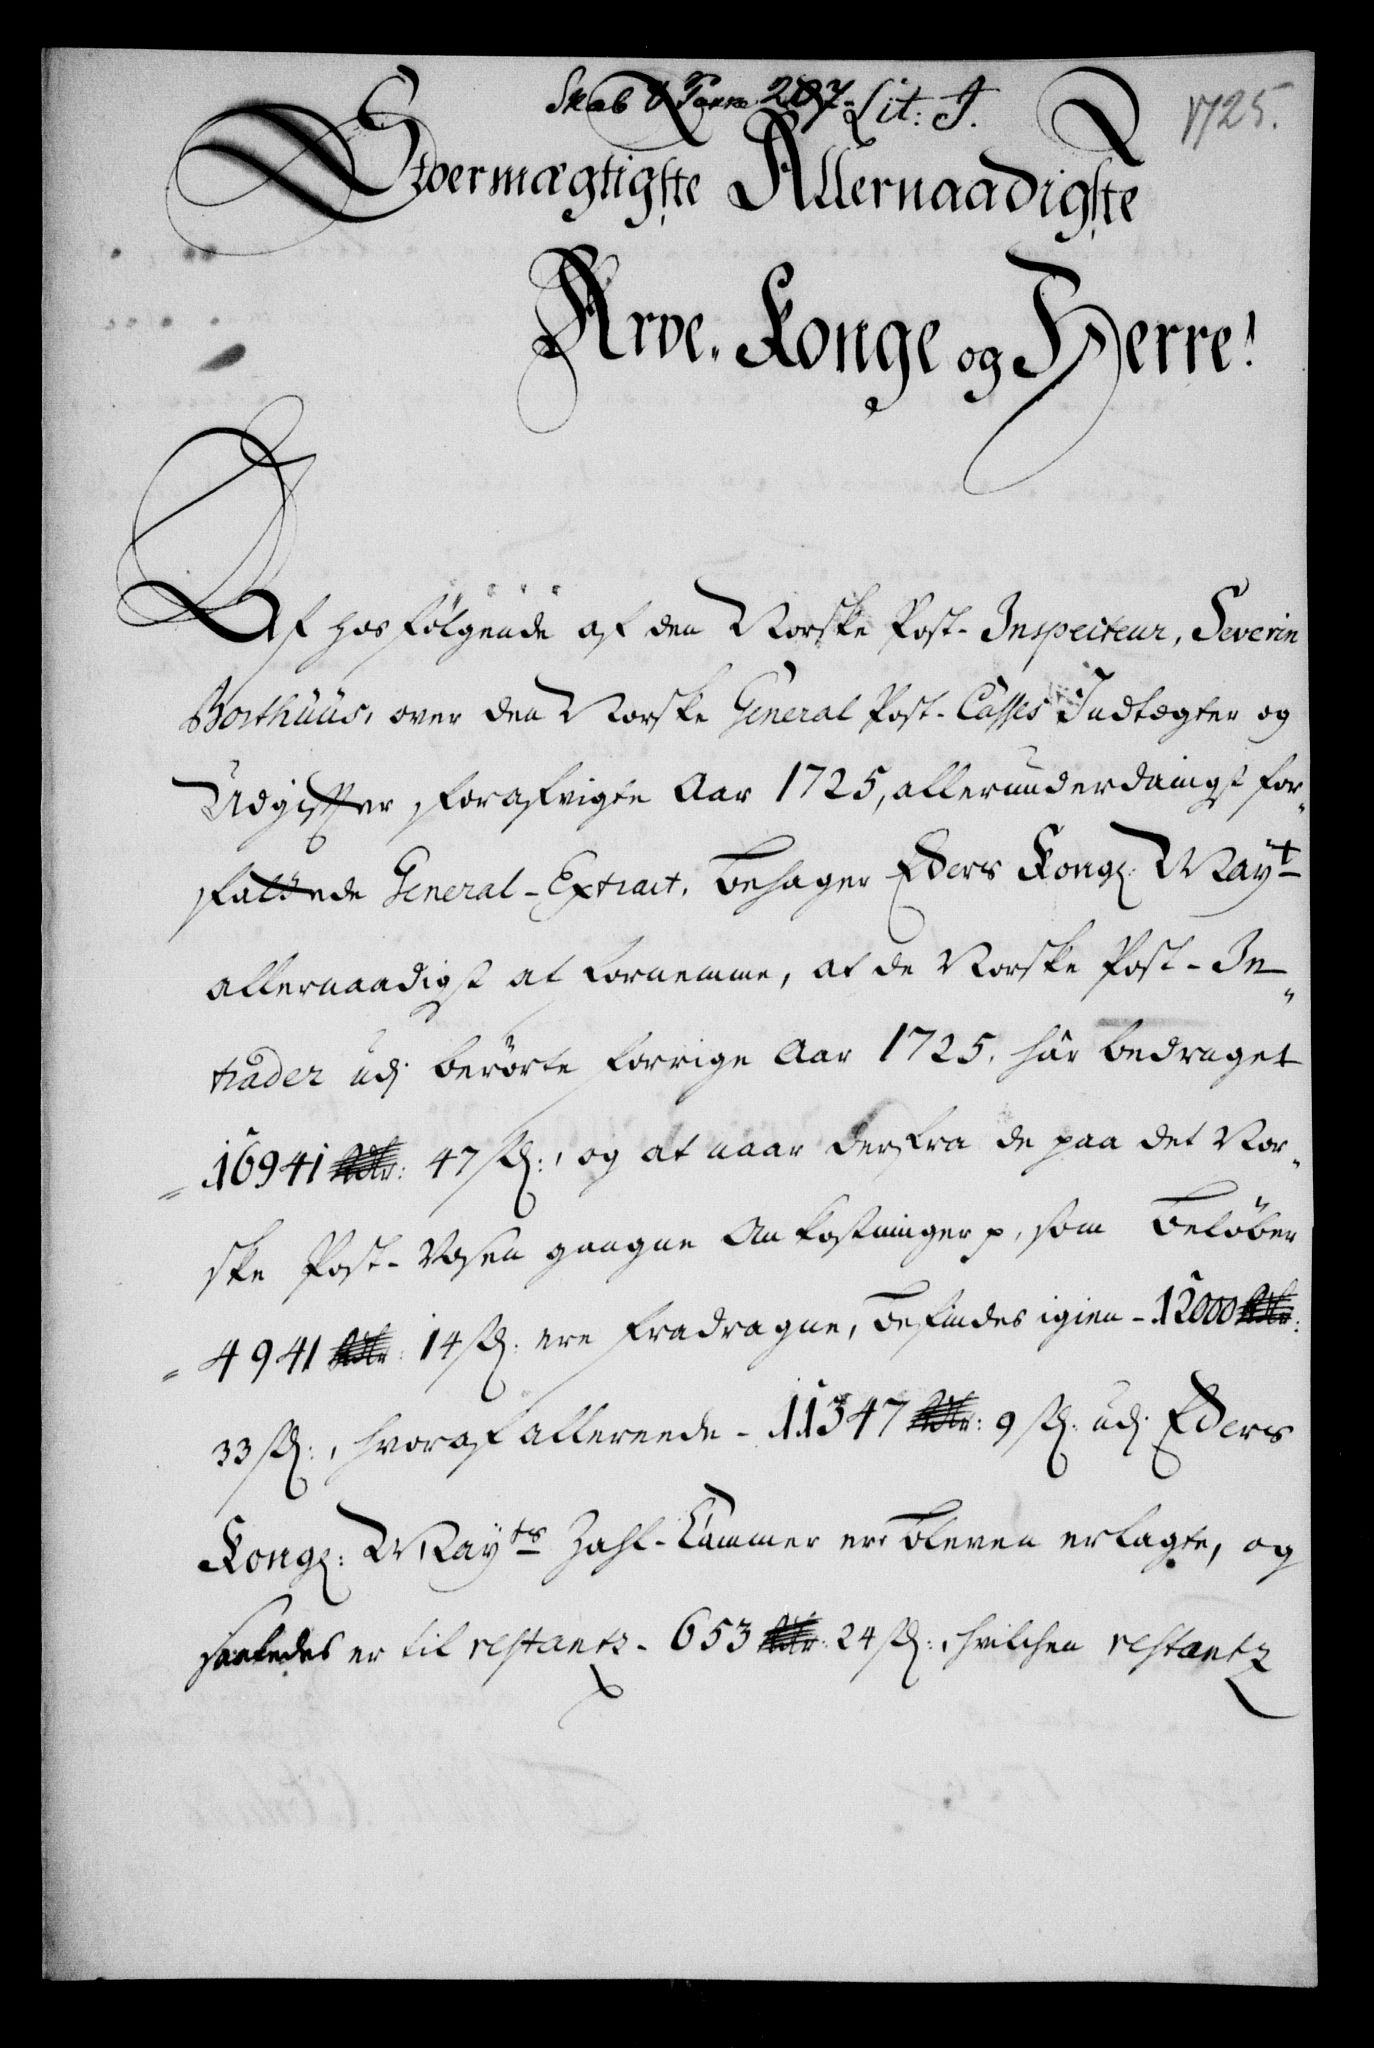 Skab 8 Lit: J.
1725.
Stoermægtigste Allernaadigste
Arve. Konge og Herre!
Af hosfølgende af den Norske Post-Inspecteur, Severin
Borthüüs, over den Norske General Post-Casses Indtægter og
Udgifter forafvigte Aar 1725, allerunderdanigst for„
fattede General-Extract, behager Eders Kongl: May.t
allernaadigst at fornemme, at de Norske Post-In„
trader udj berörte forrige Aar 1725, har bedraget
„ 16941 Rdr: 47 sk:, og at naar derfra de paa det Nor„
ske Post-Væsen gangne Ankostninger p, som belöber
„ 4941 Rdr: 14 sk: ere fradragne, befindes igien - 12000 Rdr:
33 sk:, hvoraf allereede - 11347 Rdr: 9 sk: udj Eders
Kongl: May.ts Zahl-Cammer ere bleven erlagte, og
saaledes er til restantz - 653 Rdr: 24 sk:, hvilchen restantz